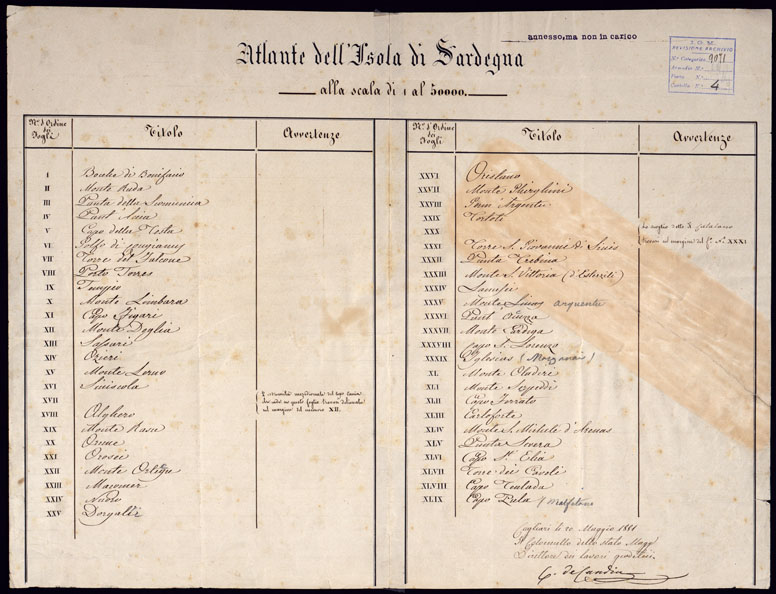 annesso, ma non in carico
I. G. M.
REVISIONE ARCHIVIO
N.° Categorico 9071
Armadio N.°
Parte N.°
Cartella N.° 4
Atlante dell'Isola di Sardegna
alla scala di 1 al 50000.
N.° d'Ordine dei Fogli
Titolo
Avvertenze
I Bocche di Bonifacio
II Monte Ruda
III Punta della
IV Punt'
V Capo della Testa
VI Golfo di Congianus
VII Torre del Falcone
VIII Porto Torres
IX Tempio
X Monte Limbara
XI Capo Figari
XII Monte Doglia
XIII Sassari
XIV Ozieri
XV Monte Lerno
XVI Siniscola
XVII
XVIII Alghero
XIX Monte Rasu
XX Orune
XXI Orosei
XXII Monte
XXIII Macomer
XXIV Nuoro
XXV Dorgali
L'estremità meridionale del Capo Caccia
che cade in questo foglio trovasi delineata
sul margine del numero XII.
N.° d'Ordine dei Fogli
Titolo
Avvertenze
XXVI Oristano
XXVII Monte Ghirghini
XXVIII Monti Argentu
XXIX Tortolì
XXX
XXXI Torre S. Giovanni di Sinis
XXXII Punta Trebina
XXXIII Monte S. Vittoria (d'Esterzili)
XXXIV Lanusei
XXXV Monte Linas arquentu
XXXVI Punt'
XXXVII Monte Cardiga
XXXVIII Capo S. Lorenzo
XXXIX Iglesias
XL Monte
XLI Monte
XLII Capo Ferrato
XLIII Carloforte
XLIV Monte S. Michele d'Arenas
XLV Punta
XLVI Capo S. Elia
XLVII Torre dei Cavoli
XLVIII Capo Teulada
XLIX Capo Pula
Lo scoglio detto il Catalano
trovasi al margine del f.° N.° XXXI
Cagliari Maggio
Il Colonnello dello Stato Magg.
Direttore dei lavori geodetici
C. de Candia